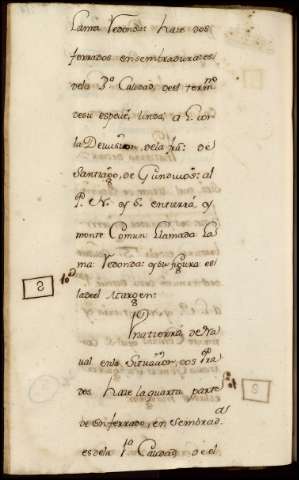 Lama Redonda: haze dos
ferrados en sembradura es
dela 3ª Calidad, de el termno
desu especie, linda, a L. con
la Devission, dela fª: de
Santiago, de Gundivos: al
P. N. y S. en tierra, y
monte Comun: llamada La
ma: Redonda: y su figura es
la del Margen:
8
10
Una tierra de Na
val en la Situazon, dos
dos haze la quarta parte
de un ferrado, en sembrad-
es dela 1ª Calidad, de el
8